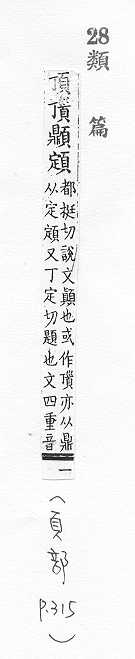 28
類篇
頂𩕢顁
都挺切說文顚也或作亦从鼎
从定顁又丁定切題也文四重音
一
(頁部 P.315)